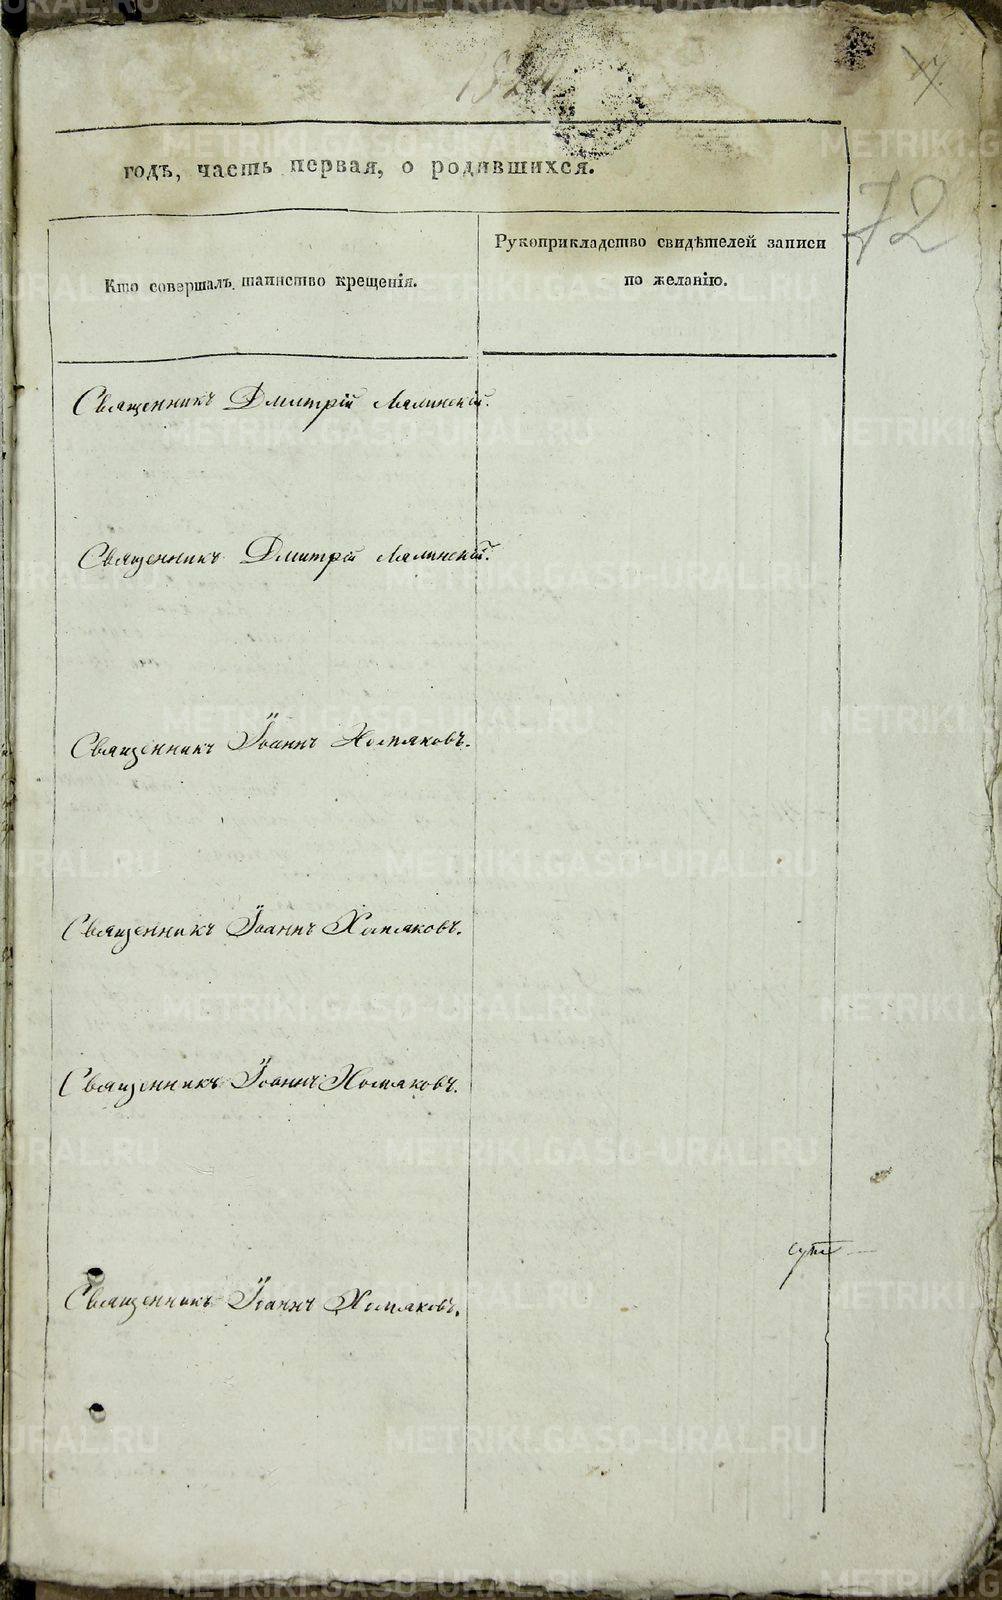 годъ, часть первая, о родившихся.
72
Кто совершалъ таинство крещенія.
Рукоприкладство свидѣтелей записи
по желанію.
Священникъ Дмитрій Лялинскій.
Священникъ Дмитрій Лялинскій.
Священникъ Іоаннъ Хомяковъ.
Священникъ Іоаннъ Хомяковъ.
Священникъ Іоаннъ Хомяковъ.
Священникъ Іоаннъ Хомяковъ.
METRIKI.GASO-URAL.RU